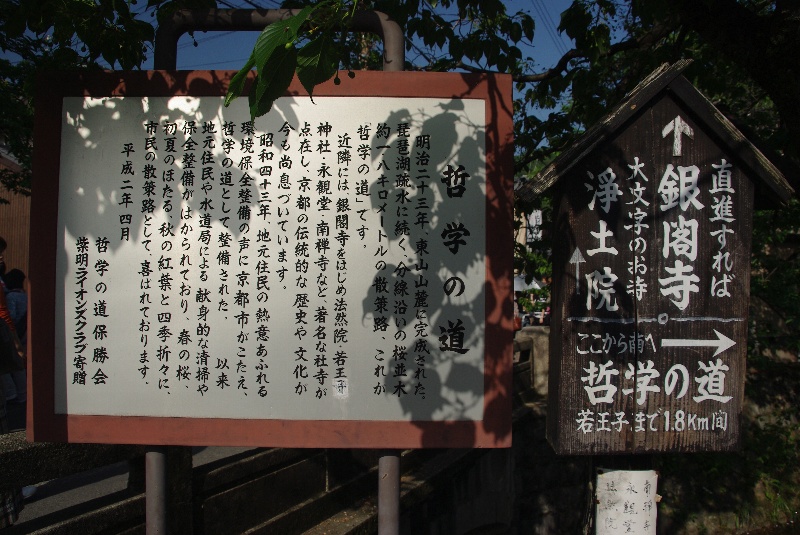 哲学の道
明治二十三年、東山山麓に完成された、
琵琶湖疏水に続く、分線沿いの桜並木
約一・八キロメートルの散策路、これが
「哲学の道」です。
近隣には、銀閣寺をはじめ法然院、若王寺
神社・永観堂・南禅寺など、著名な社寺が
点在し、京都の伝統的な歴史や文化が
今も尚息づいています。
昭和四十三年、地元住民の熱意あふれる
環境保全整備の声に京都市がこたえ、
哲学の道として整備された。 以来
地元住民や水道局による献身的な清掃や
保全整備がはかられており、春の桜、
初夏のほたる、秋の紅葉と四季折々に、
市民の散策路として、喜ばれております。
平成二年四月
哲学の道保勝会
紫明ライオンズクラブ寄贈
直進すれば
↑銀閣寺
大文字のお寺
↑浄土院
ここから南へ→
哲学の道
若王子まで1.8Km間
南禅寺
永観堂
法然院